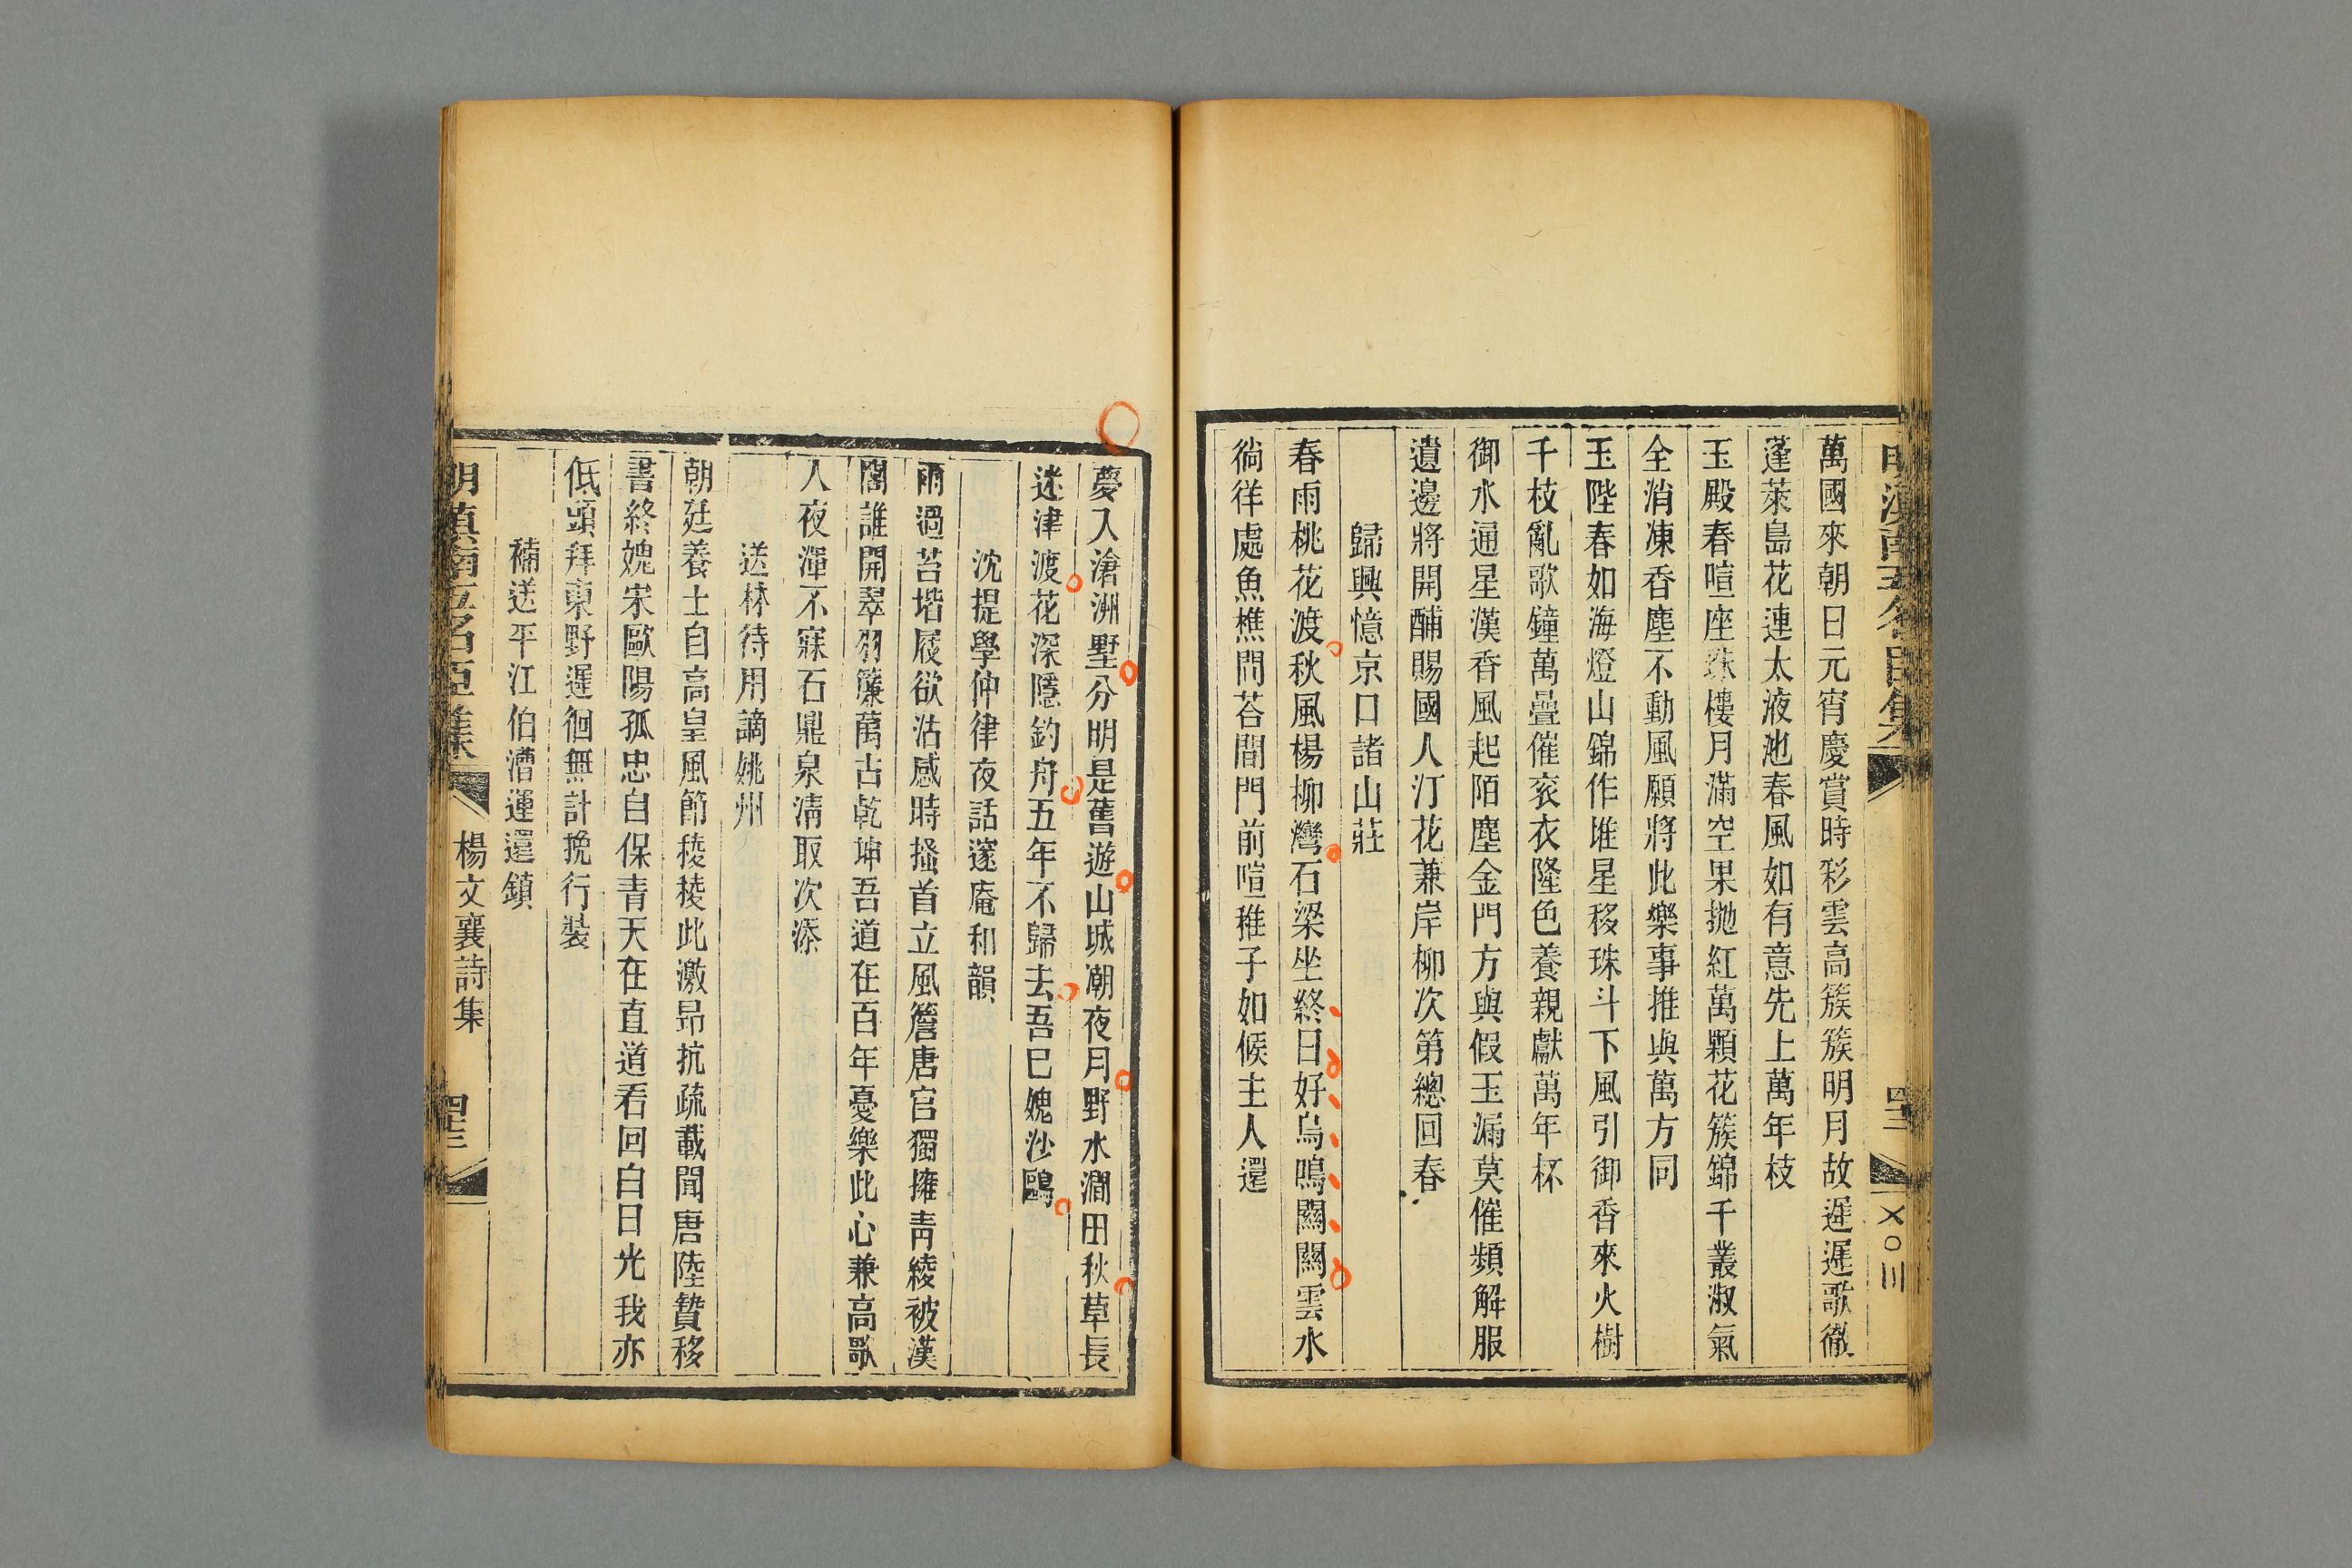 萬國來朝日元宵慶賞時彩雲高簇簇明月故遲遲歌徹
蓬萊島花連太液池春風如有意先上萬年枝
玉殿春喧座珠樓月滿空果拋紅萬顆花簇錦千叢淑氣
全消凍香塵不動風願將此樂事推與萬方同
玉陛春如海燈山錦作堆星移珠斗下風引御香來火樹
千枝亂歌鐘萬疊催衮衣隆色養親獻萬年杯
御水通星漢香風起陌塵金門方與假玉漏莫催頻解服
遺邊將開酺賜國人汀花兼岸柳次第總回春
歸興憶京口諸山莊
春雨桃花渡秋風楊柳灣石梁坐終日好鳥鳴關關雲水
徜徉處魚樵問荅間門前喧稚子如候主人還
夢入滄洲墅分明是舊遊山城潮夜月野水澗田秋草長
迷津渡花深隱釣舟五年不歸去吾已媿沙鷗
沈提學仲律夜話邃庵和韻
雨過苔堦屐欲沾感時搔首立風簷唐官獨擁青綾被漢
閣誰開翠羽簾萬古乾坤吾道在百年憂樂此心兼高歌
人夜渾不寐石鼎泉清取次添
送林待用謫姚州
朝廷養士自高皇風節稜稜此激昻抗疏載聞唐陸贄移
書終媿宋歐陽孤忠自保青天在直道看回白日光我亦
低頭拜東野遲徊無計挽行裝
補送平江伯漕運還鎮
明滇南五名臣集
楊文襄詩集